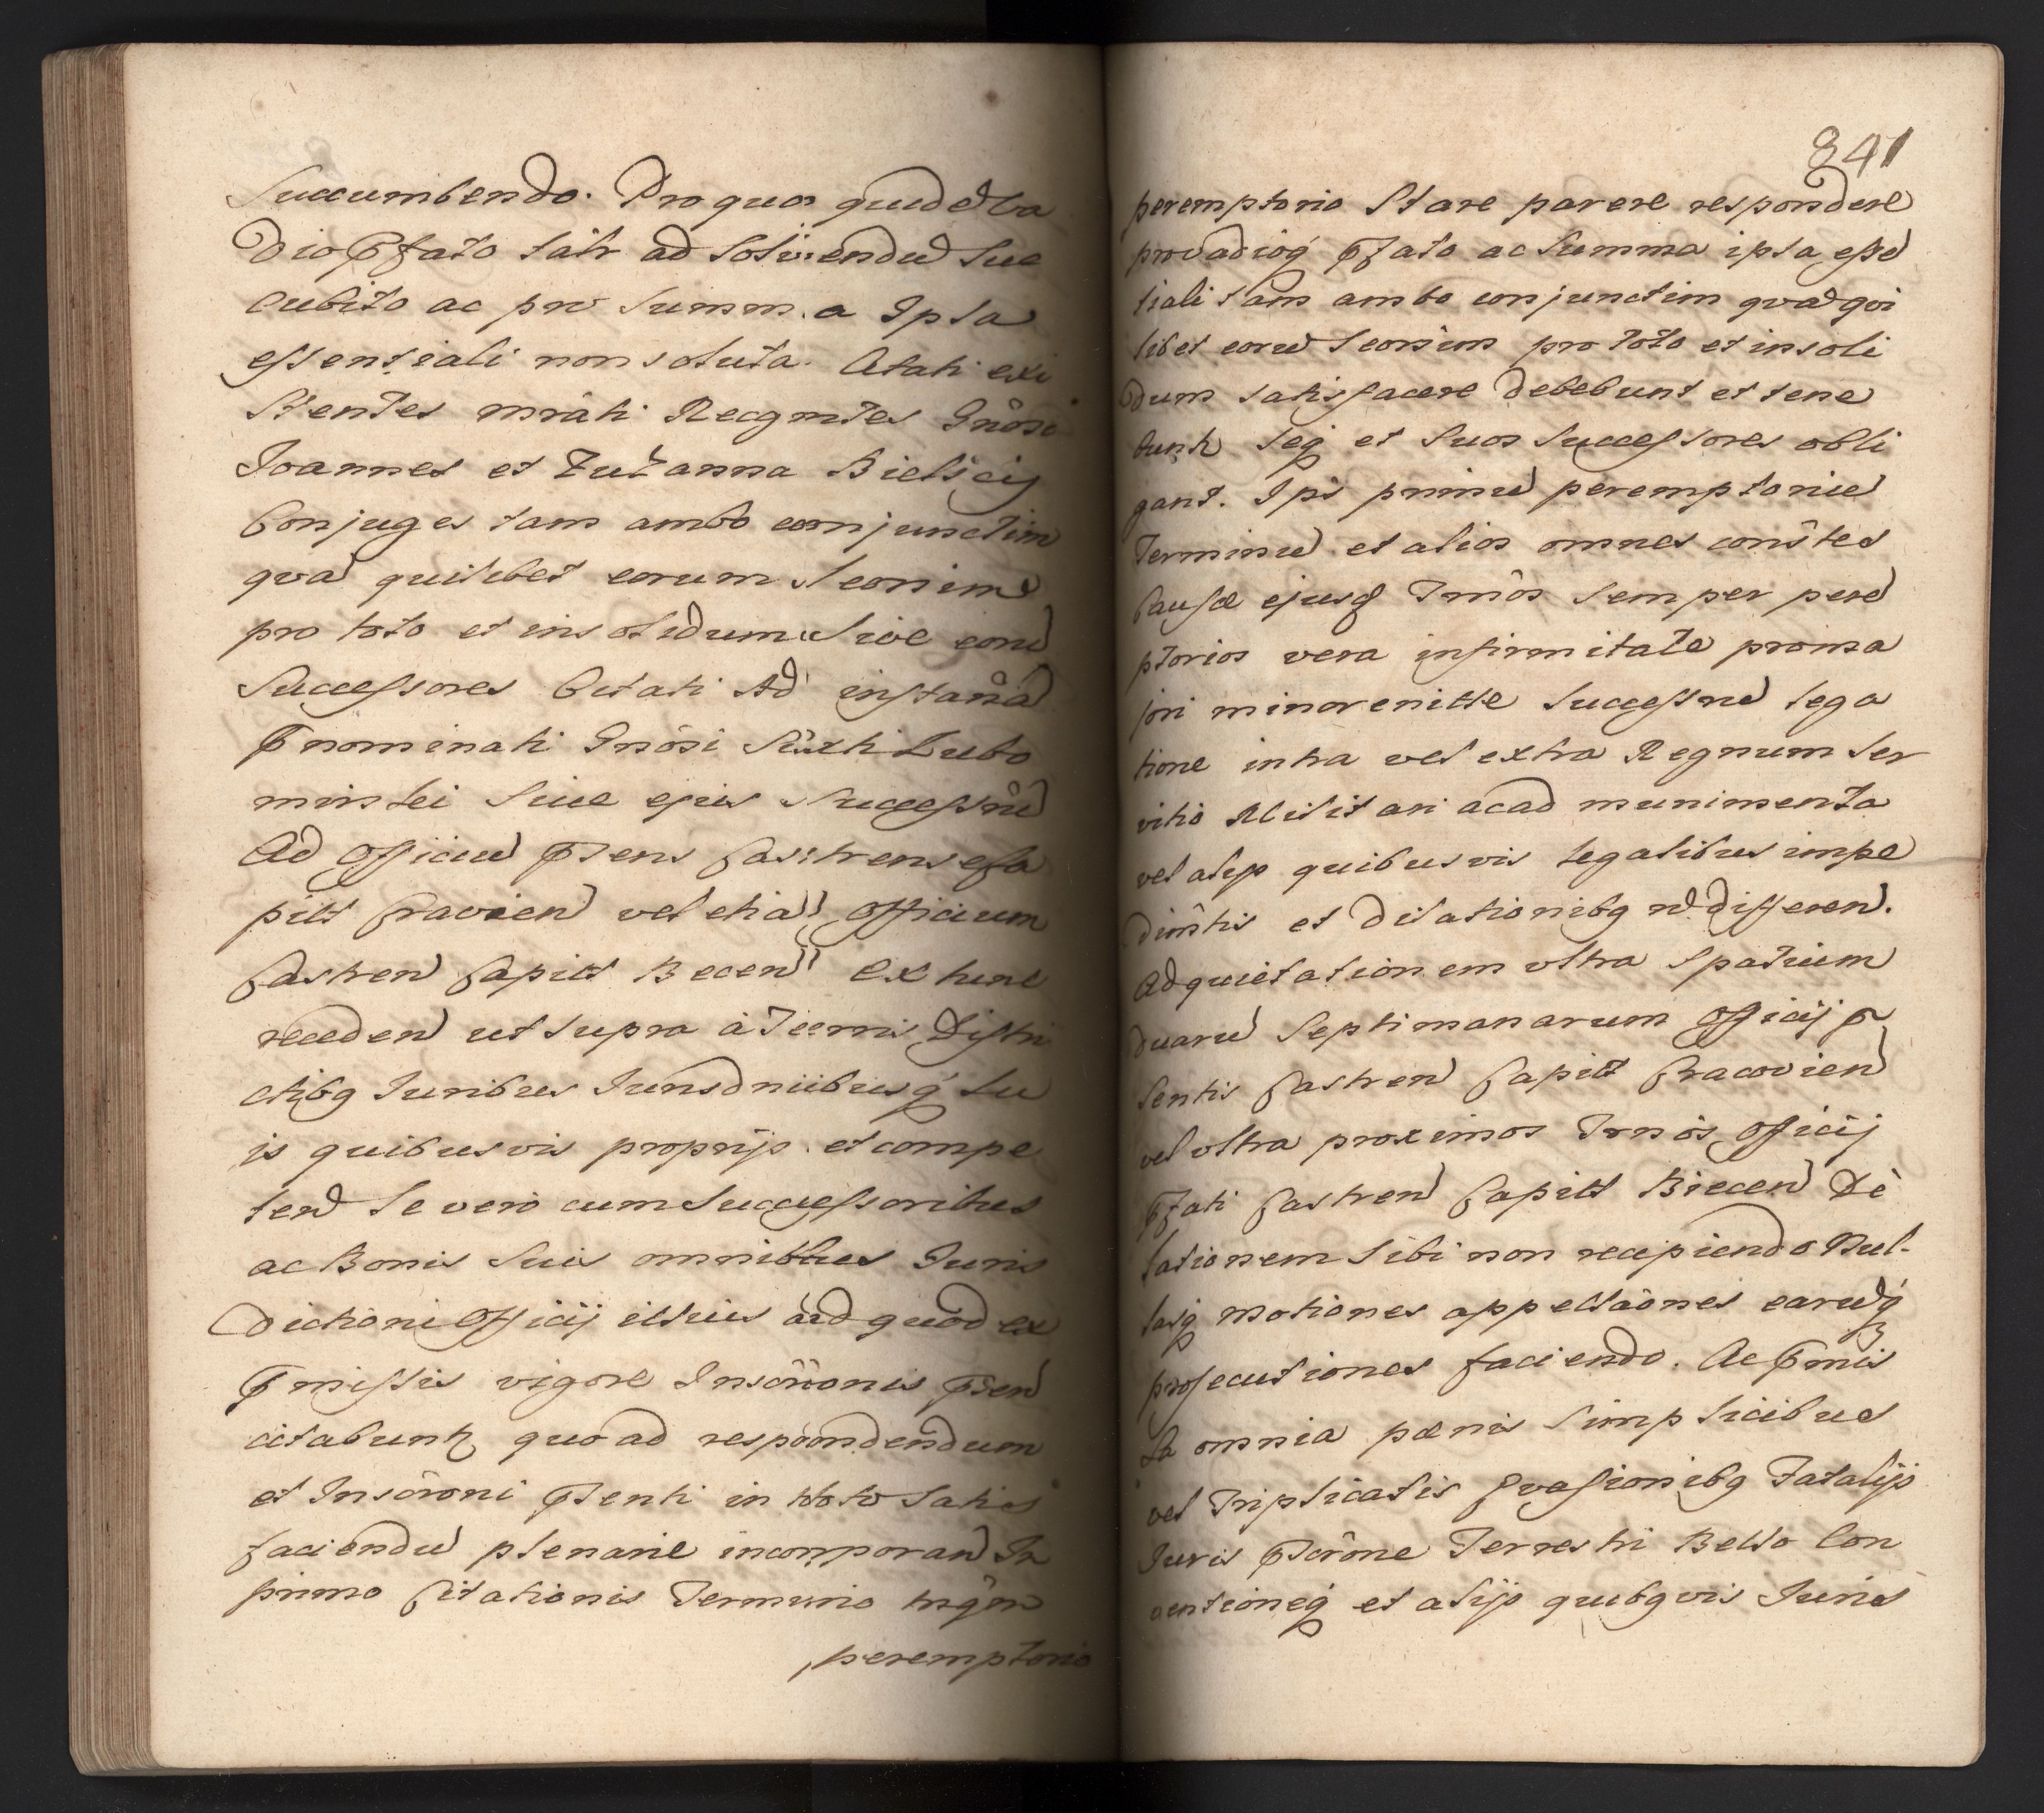 Succumbendo. Pro quo quidē va
dio p̄fato tālr ad solvendū suc
cubito ac pro summa ipsa
essentiali non soluta. Citati exi
stentes mrāti Recgn̄tes Gn̄osi
Joannes et Zuzanna Bielscÿ
Conjuges tam ambo conjunctim
qvā quilibet eorum seorsim
pro toto et insolidum sive eorū
Successores Citati Ad instan̄ā
p̄nominati Gn̄osi Sixti Lubo
minski sive ejus Successrū
Ad Officiū p̄sens Castrense Ca
pitt Cracvien̄ vel etiā Officium
Castren̄ Capitt Becen̄ ex tunc
receden̄ ut supra à Terris Distri
ctibq Juribus Jurisdniibusq́ su
is quibusvis proprijs et compe
ten̄ se vero cum Successoribus
ac Bonis suis omnibus Juris
dictioni Officij illius ad quod ex
p̄missis vigore Inscr̄onis p̄sen̄
citabunt̄ quo ad respondendum
et Inscr̄oni p̄senti in toto satis
faciendū plenarie incorporan̄ In
primo Citationis Termino tnq̄m
peremptorio
841
peremptorio Stare parere respondere
pro vadioq́ p̄fato ac Summa ipsa essē
tiali tam ambo conjunctim qvā qui
libet eorū seorsim pro toto et insoli
dum satisfacere debebunt et tene
bunt̄ seq́ et suos Successores obli
gant. Ipī primū peremptoriū
Terminū et alios omnes cons̄tes
Causæ ejusq́ Tm̄os semper perē
ptorios vera infirmitate pro ma
jori minorenitte Successrū lega
tione intra vel extra Regnum ser
vitio Militari ac ad munimenta
vel alijs quibusvis legalibus impe
dimn̄tis et dilationibq n̄ differen̄.
Ad quietationem ultra spatium
duarū Septimanarum Officij p̄
sentis Castren̄ Capitt Cracovien̄
vel ultra proximos Tm̄os Officij
p̄fati Castren̄ Capitt Biecen̄ Di
lationem sibi non recipiendo Nul-
lasq́ motiones appellāones earūq́
prosecutiones faciendo. Ac p̄mis
sa omnia pænis simplicibus
vel Triplicatis Evasionibq Fatalijs
Juris p̄scr̄one Terrestri Bello Con
ventioneq́ et alijs quibqvis Juris